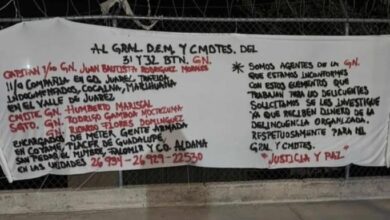 AL GRAL. D.E.M. Y CMDTES. DEL
31 Y 32 BTN. G.N.
CAPITAN 1/o G.N. JUAN BAUTISTA RODRIGUEZ MORALES
11/a COMPAÑIA EN CD. JUAREZ. TRAFICA
INDOCUMENTADOS, COCAINA, MARIHUANA
EN EL VALLE DE JUAREZ
CMDTE G.N. HUMBERTO MARISCAL
SGTO. G.N. RODRIGO GAMBOA MOCTEZUMA
G.N. RICARDO FLORES DOMINGUEZ
ENCARGADOS DE METER GENTE ARMADA
EN COYAME, PLACER DE GUADALUPE
SAN PEDRO, EL MIMBRE, FALOMIR Y CD. ALDAMA
EN LAS UNIDADES 26934 - 26929 - 22530
* SOMOS AGENTES DE LA G.N.
QUE ESTAMOS INCONFORMES
CON ESTOS ELEMENTOS QUE
TRABAJAN PARA LOS DELICUENTES
SOLICITAMOS SE LES INVESTIGUE
YA QUE RECIBEN DINERO DE LA
DELINCUENCIA ORGANIZADA.
RESPETUOSAMENTE PARA MI
GRAL Y CMDTES.
"JUSTICIA Y PAZ"